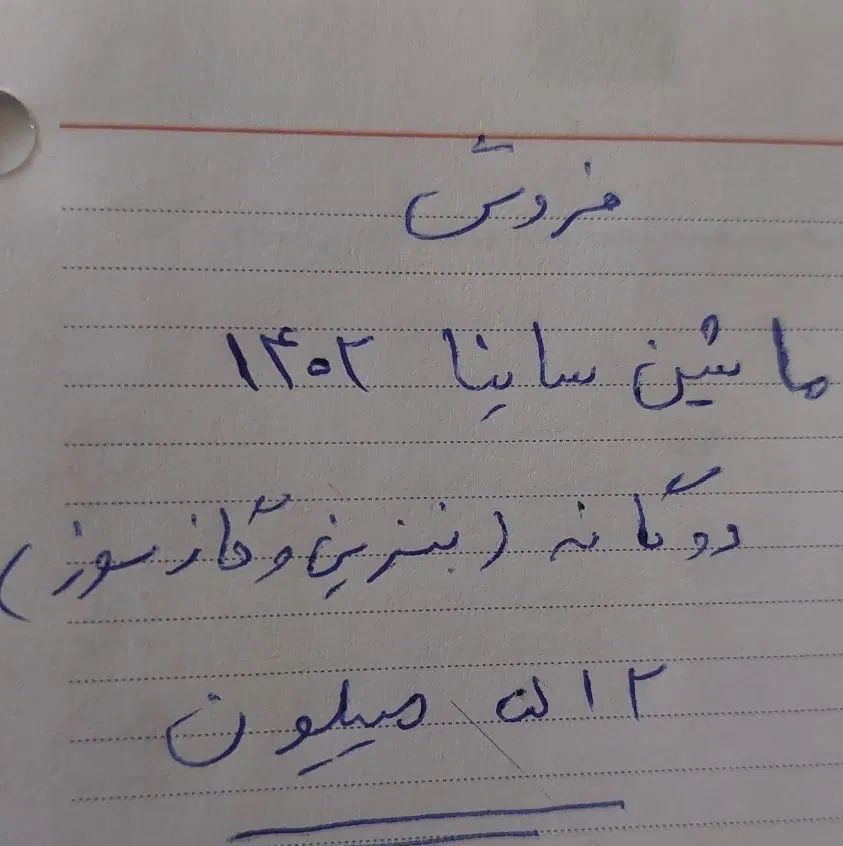 فروش
ماشین ساینا ۱۴۰۲
دوگانه (بنزین و گاز سوز)
۵۱۲ میلیون